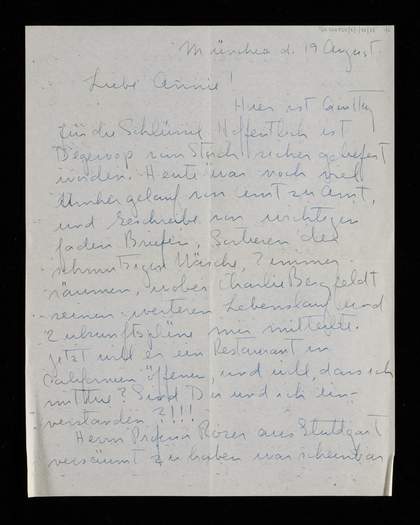 München d. 19 August.
Liebe Annie!
Hier ist
für die Schlüssel Hoffentlich ist
sicher geliefert
worden. Heute war noch viel
Umhergelauf von Amt zu Amt,
und Geschreibe von wichtigen
faden Briefen, Sortieren der
schmutzigen Wäsche, Zimmer
räumen, wobei Charlie Bergfeldt
seinen weiteren Lebenslauf und
Zukunftspläne mir mitteilte.
Jetzt will er ein Restaurant in
Californien öffnen, und will, dass ich
mittue? Sind Du und ich ein-
verstanden?!!!
Herrn Profesor aus Stuttgart
versäumt zu haben war scheinbar